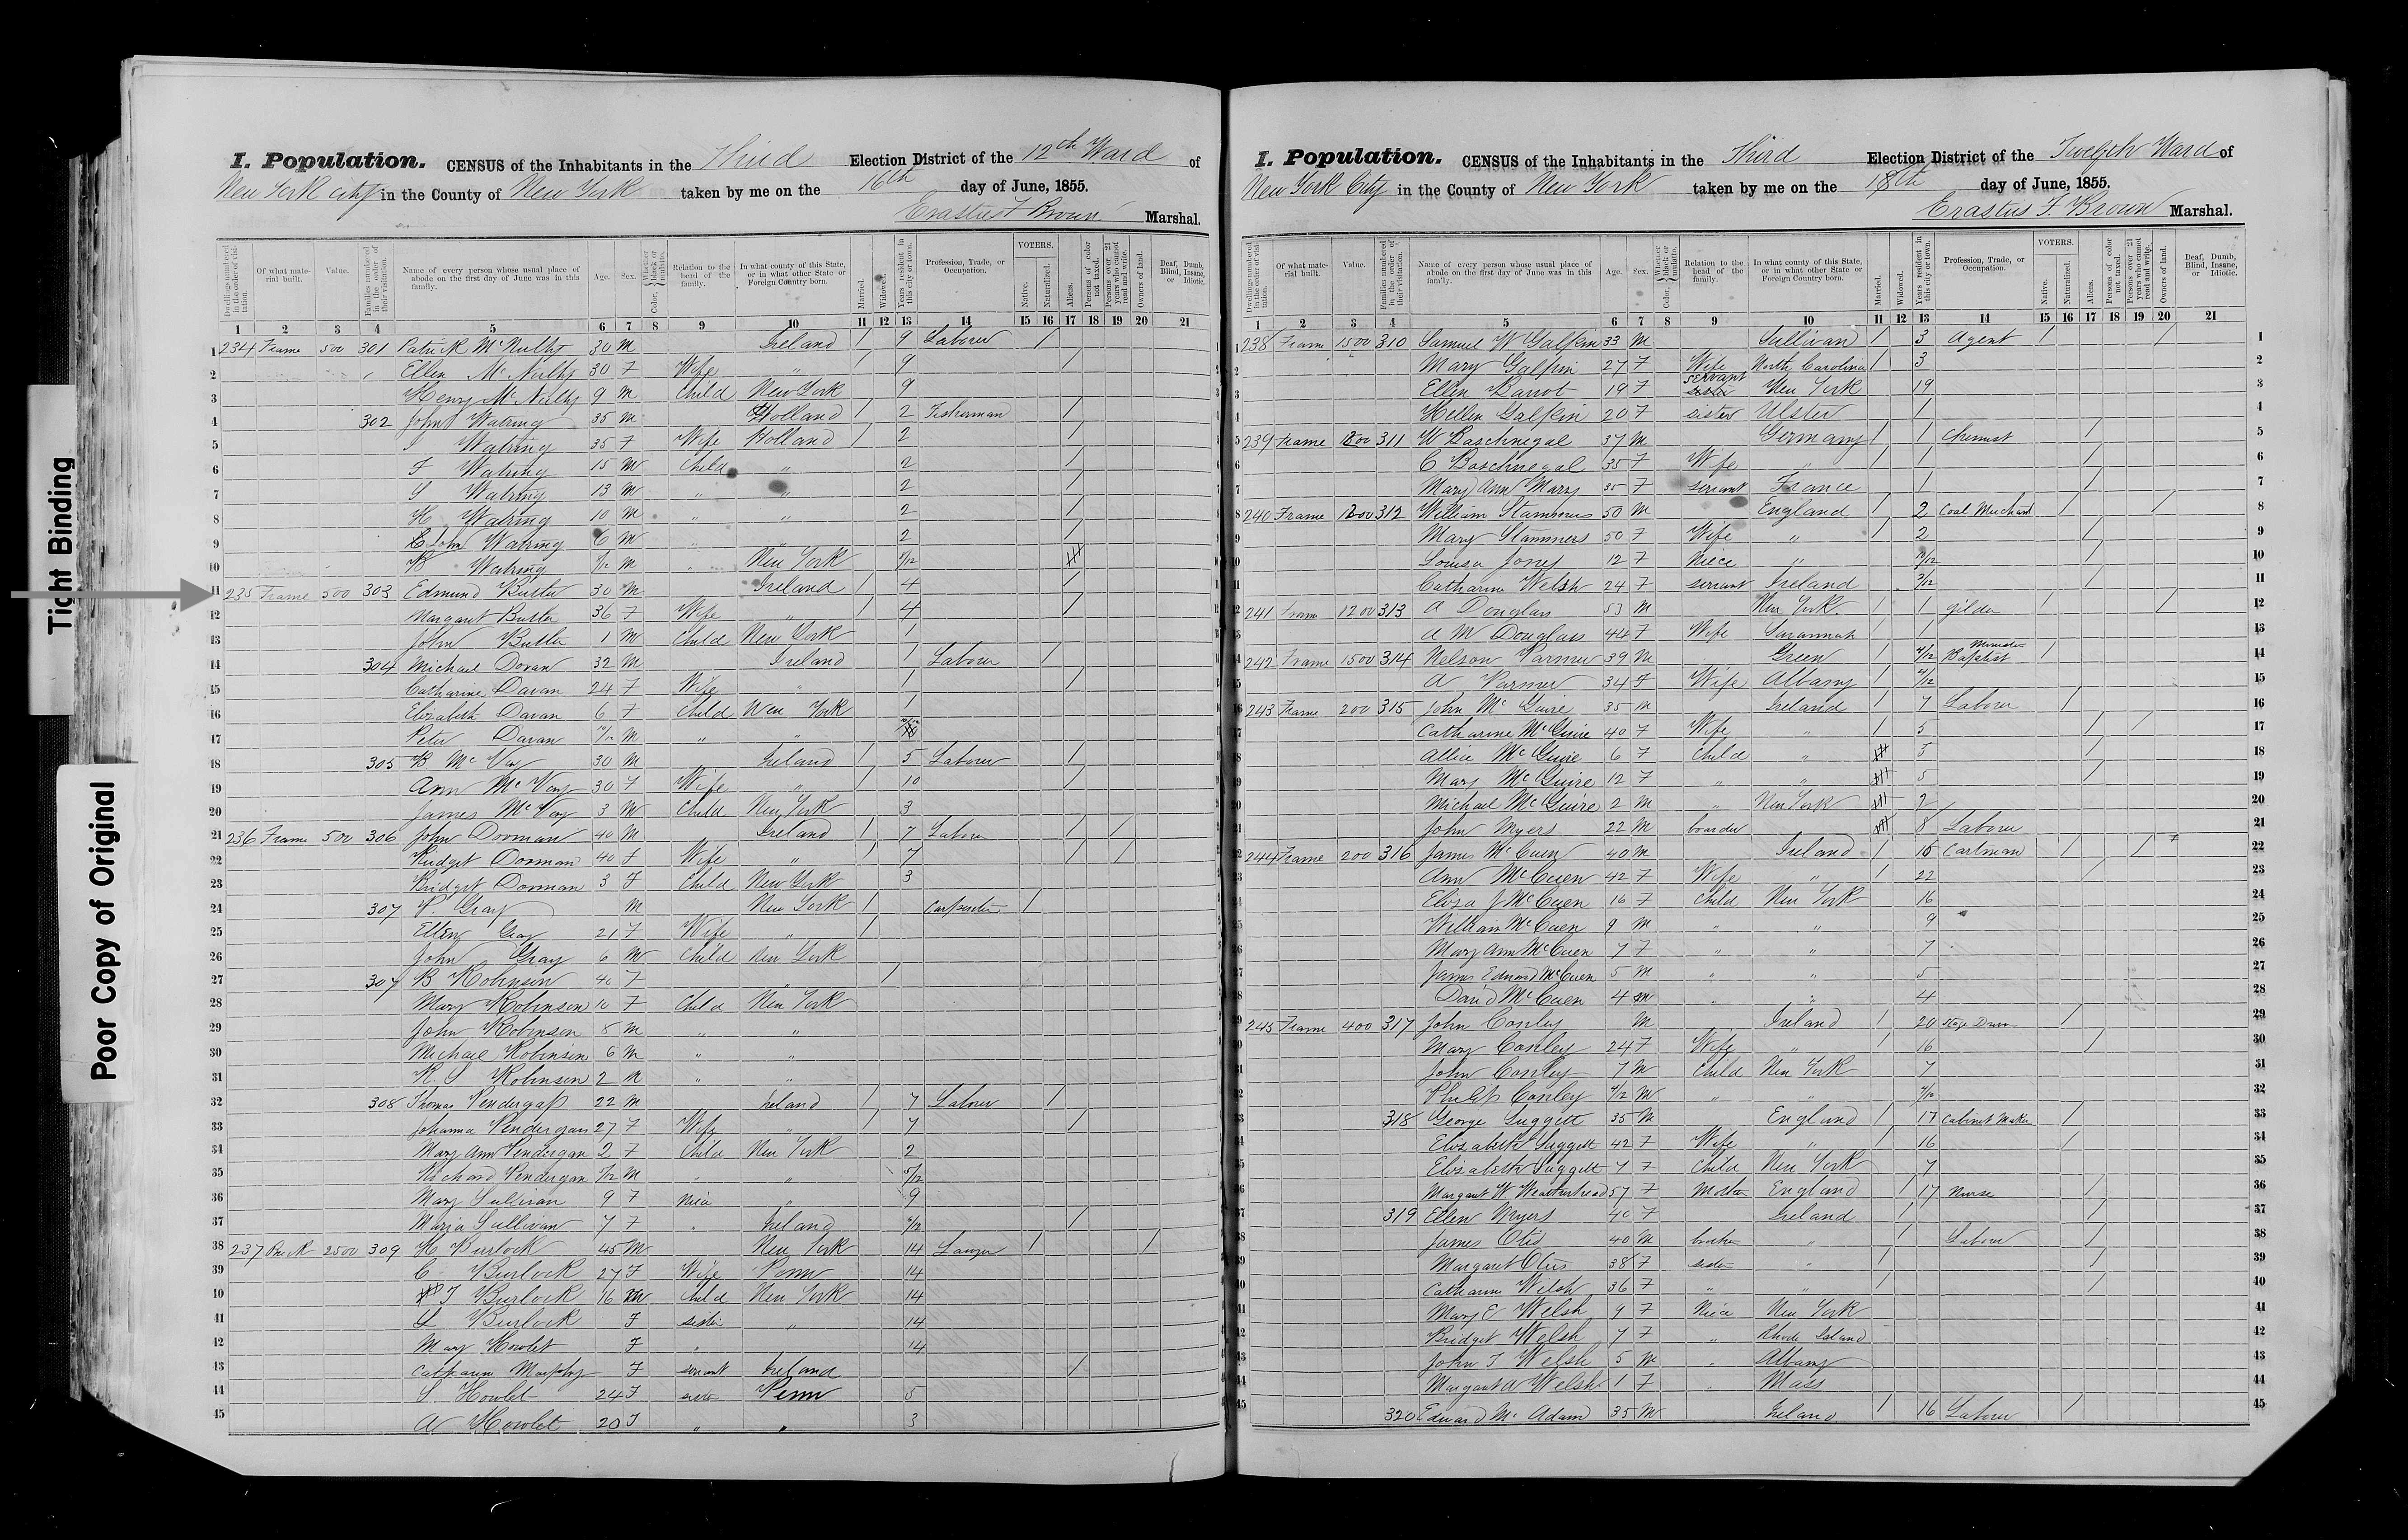 Tight Binding
Poor Copy of Original
I. Population. CENSUS of the Inhabitants in the Third Election District of the 12th Ward of
New York City in the County of New York taken by me on the 16th day of June, 1855.
Erastus F Brown Marshal.
Dwellings numbered in the order of visitation. Of what material built. Value. Families numbered in the order of their visitation. Name of every person whose usual place of abode on the first day of June was in this family. Age. Sex. Color, Whether black or mulatto. Relation to the head of the family. In what county of this State, or in what other State or Foreign Country born. Married. Widowed. Years resident in this city or town. Profession, Trade, or Occupation. VOTERS. Native. Naturalized. Aliens. Persons of color not taxed. Persons over 21 years who cannot read and write. Owners of land. Deaf, Dumb, Blind, Insane, or Idiotic.
1 2 3 4 5 6 7 8 9 10 11 12 13 14 15 16 17 18 19 20 21
1 234 Frame 500 301 Patrick McNulty 30 M Ireland / 9 Laborer /
2 Ellen McNulty 30 F Wife " / 9 /
3 Henry McNulty 9 M Child New York 9
4 302 John Watring 35 M Holland / 2 Fisherman /
5 Watring 35 F Wife Holland / 2 /
6 F Watring 15 M Child " 2 /
7 S Watring 13 M " " 2 /
8 H Watring 10 M " " 2 /
9 John Watring 6 M " " 2 /
10 Watring M " New York
11 235 Frame 500 303 Edmund Butler 30 M Ireland / 4 /
12 Margaret Butler 36 F Wife " / 4 /
13 John Butler 1 M Child New York 1
14 304 Michael Doran 32 M Ireland / Laborer /
15 Catharine Davan 24 F Wife " 1 /
16 Elizabeth Davan 6 F Child New York 1
17 Peter Davan M " "
18 305 B McVay 30 M Ireland / 5 Laborer /
19 Ann McVay 30 F Wife " / 10 /
20 James McVay 3 M Child New York 3
21 236 Frame 500 306 John Dorman 40 M Ireland / 7 Labore / /
22 Bridget Dorman 40 F Wife " / 7 / /
23 Bridget Dorman 3 F Child New York 3
24 307 P. Gray M New York / Carpenter /
25 Ellen Gray 21 F Wife " /
26 John Gray 6 M Child New York
27 307 B Robinson 40 F " /
28 Mary Robinson 10 F Child New York
29 John Robinson 8 M " "
30 Michael Robinson 6 M " "
31 R. S Robinson 2 M " "
32 308 Thomas Pendergass 22 M Ireland / 7 Laborer /
33 Johanna Pendergass 27 F Wife " / 7 /
34 Mary Ann Pendergan 2 F Child New York 2
35 Richard Pendergan 5/12 M " " 5/12
36 Mary Sullivan 9 F Niece " 9
37 Maria Sullivan 7 F " Ireland 6/12 /
38 237 Brick 2500 309 H Burlock 45 M New York 14 Lawyer / /
39 C Burlock 27 F Wife Penn 14
40 J Burlock 16 M Child New York 14
41 Burlock F sister " 14
42 Mary Howlet F " 14
43 Catharine Murphy F servant Ireland /
44 S Howlet 24 F sister Penn 5
45 A Howlet 20 F " " 3
I. Population. CENSUS of the Inhabitants in the Third Election District of the Twelfth Ward of
New York City in the County of New York taken by me on the 18th day of June, 1855.
Erastus F. Brown Marshal.
Dwellings numbered in the order of visitation. Of what material built. Value. Families numbered in the order of their visitation. Name of every person whose usual place of abode on the first day of June was in this family. Age. Sex. Color, Whether black or mulatto. Relation to the head of the family. In what county of this State, or in what other State or Foreign Country born. Married. Widowed. Years resident in this city or town. Profession, Trade, or Occupation. VOTERS. Native. Naturalized. Aliens. Persons of color not taxed. Persons over 21 years who cannot read and write. Owners of land. Deaf, Dumb, Blind, Insane, or Idiotic.
1 2 3 4 5 6 7 8 9 10 11 12 13 14 15 16 17 18 19 20 21
238 Frame 1500 310 Samuel W Galpin 33 M Sullivan / 3 Agent / / 1
Mary Galpin 27 F Wife North Carolina / 3 2
Ellen Barrot 19 F servant New York 19 3
Hellen Galpin 20 F sister Ulster 1 4
239 Frame 311 W Baschnegal 37 M Germany / 1 Chemist / 5
C Baschnegal 35 F Wife " / 1 / 6
Mary Ann Marx 35 F servant France 1 / 7
240 Frame 312 William Stammers 50 M England / 2 Coal Merchant / / 8
Mary Stammers 50 F Wife " / 2 / 9
Louisa Jones 12 F Niece " / 10
Catharine Welsh 24 F servant Ireland 3/12 / 11
241 Frame 1200 313 A Douglass 53 M New York / 1 gilder / / 12
A M Douglass 44 F Wife Savannah / 1 13
242 Frame 1500 314 Nelson Parmer 39 M Green / 4/12 Baptist Minister / 14
A Parmer 34 F Wife Albany / 4/12 15
243 Frame 200 315 John McGuire 35 M Ireland / 7 Laborer / 16
Catharine McGuire 40 F Wife " / 5 / / 17
Allice McGuire 6 F Child " 5 / 18
Mary McGuire 12 F " " 5 / 19
Michael McGuire 2 M " New York 2 20
John Myers 22 M boarder 8 Laborer 21
244 Frame 200 316 James McCuen 40 M Ireland / 15 Cartman / / 22
Ann McCuen 42 F Wife " / 22 / 23
Eliza J McCuen 16 F Child New York 16 24
William McCuen 9 M " " 9 25
Mary Ann McCuen 7 F " " 7 26
James Edward McCuen 5 M " " 5 27
David McCuen 4 M " " 4 28
245 Frame 400 317 John Conley M Ireland / 20 Stage Driver / 29
Mary Conley 24 F Wife " / 16 / 30
John Conley 7 M Child New York 7 31
Philip Conley 4/12 M " " 32
318 George Suggett 35 M England / 17 Cabinet Maker / 33
Elizabeth Suggett 42 F Wife " / 16 / 34
Elizabeth Suggett 7 F Child New York 7 35
Margaret W Weatherhead 57 F Mother England / 17 Nurse / 36
319 Ellen Myers 40 F Ireland / / 37
James Otis 40 M brother " / Laborer / 38
Margaret Otis 38 F sister " / / 39
Catharine Welsh 36 F " " / / 40
Mary E Welsh 9 F Niece New York 41
Bridget Welsh 7 F " Rhode Island 42
John T Welsh 5 M " Albany 43
Margaret A Welsh 1 F " Mass 44
320 Edward McAdam 35 M Ireland / 16 Laborer / 45